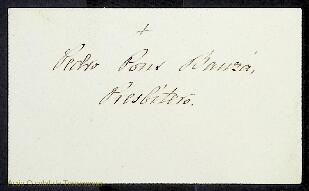 +
Pedro Pons Bauzá,
Presbítero.